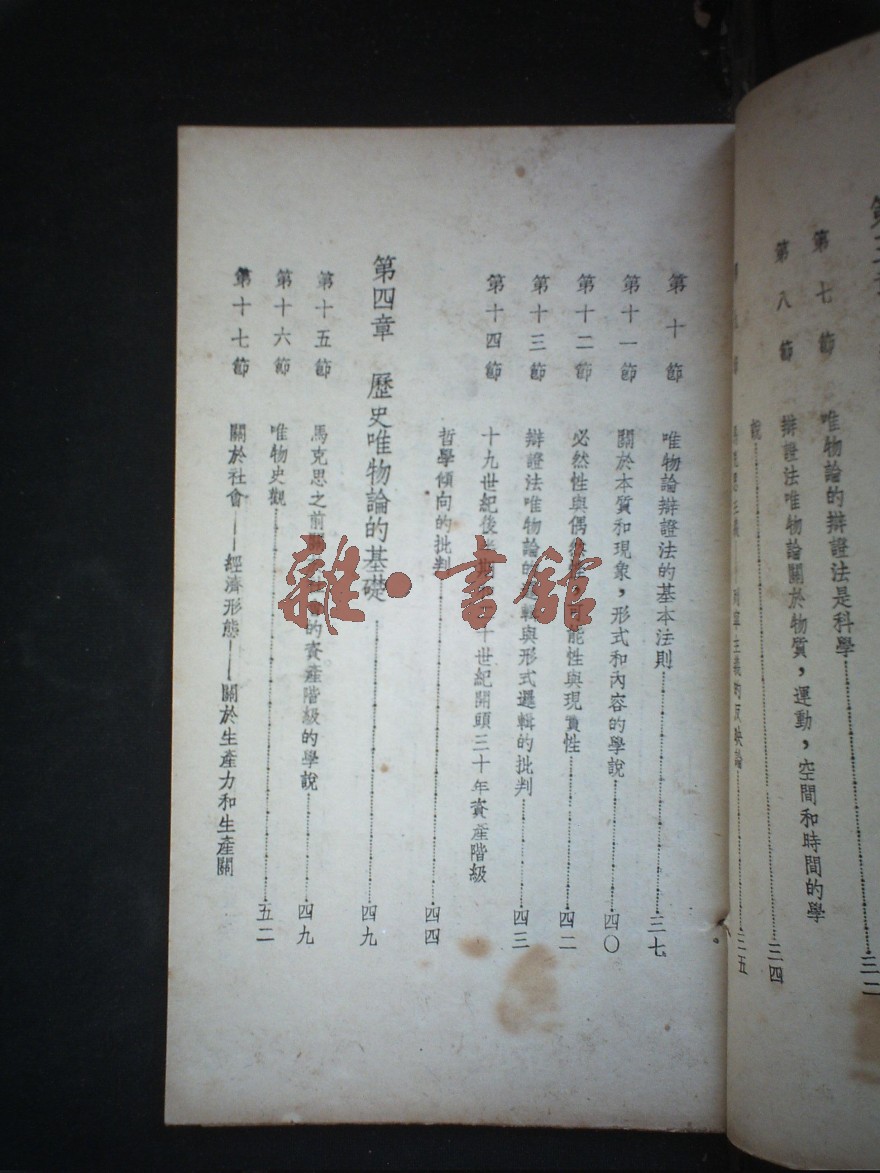 第七節 唯物論的辯證法是科學 三二
第八節 辯證法唯物論關於物質，運動，空間和時間的學
說 三四
主義的反映論 三五
第十節 唯物論辯證法的基本法則 三七
第十一節 關於本質和現象，形式和內容的學說 四〇
第十二節 必然性與偶然 可能性與現實性 四二
第十三節 辯證法唯物論的 輯與形式邏輯的批判 四三
第十四節 十九世紀後 期 十世紀開頭三十年資產階級
哲學傾向的批判 四四
第四章 歷史唯物論的基礎 四九
第十五節 馬克思之前 的資產階級的學說 四九
第十六節 唯物史觀 五二
第十七節 關於社會——經濟形態——關於生產力和生產關
雜·書館